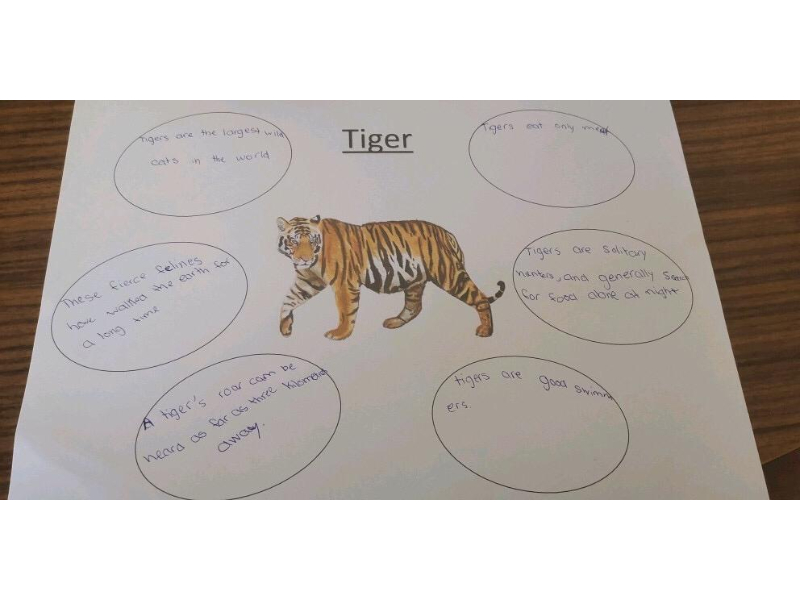 Tiger
Tigers are the largest wild
cats in the world
Tigers eat only meat
These fierce felines
have walked the earth for
a long time
Tigers are solitary
hunters, and generally
for food alone at night
A tiger's roar can be
heard as far as three kilometres
away.
tigers are good swimm
ers.